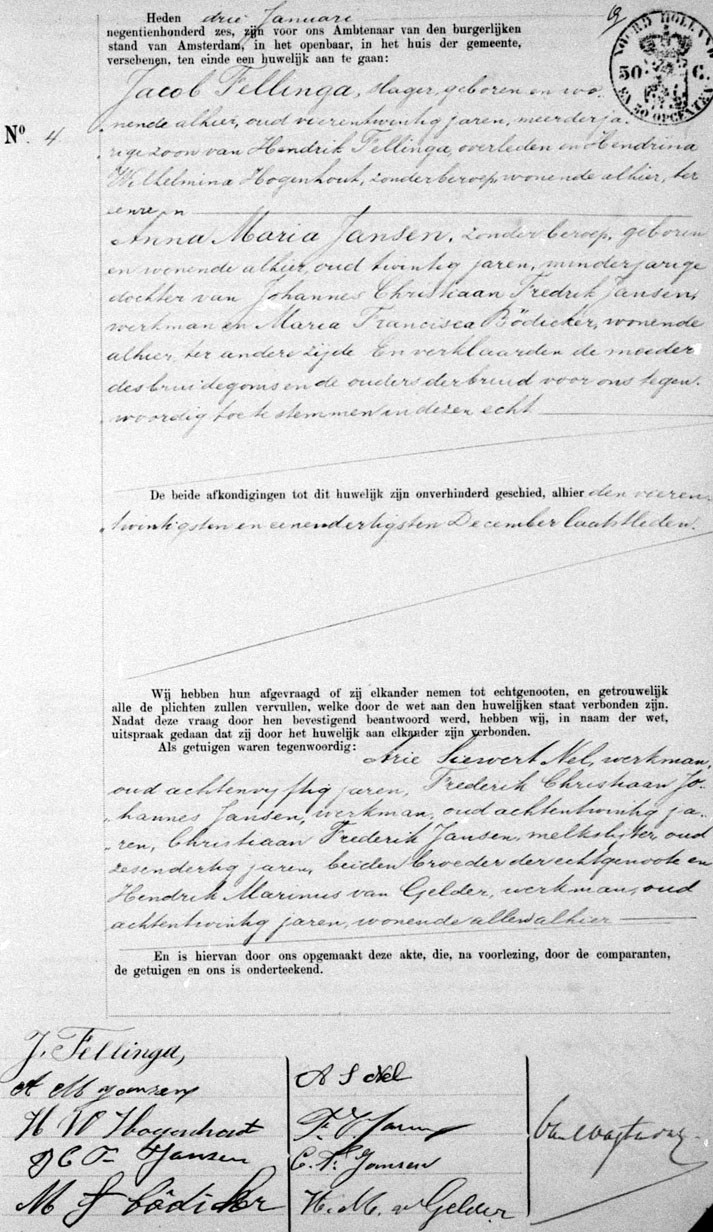 Heden drie Januari
negentienhonderd zes, zijn voor ons Ambtenaar van den burgerlijken
stand van Amsterdam, in het openbaar, in het huis der gemeente,
verschenen, ten einde een huwelijk aan te gaan:
NOORD HOLLAND
50 C.
EN 50 OPCENTEN
Jacob Fellinga, slager, geboren en wo-
No. 4
nende alhier, oud vierentwintig jaren, meerderja-
rige zoon van Hendrik Fellinga, overleden en Hendrina
Wilhelmina Hogenhout, zonder beroep, wonende alhier, ter
eenre en
Anna Maria Jansen, zonder beroep, geboren
en wonende alhier, oud twintig jaren, minderjarige
dochter van Johannes Christiaan Fredrik Jansen,
werkman en Maria Francisca Bödicker, wonende
alhier, ter andere zijde En verklaarden de moeder
des bruidegoms en de ouders der bruid voor ons tegen-
woordig toe te stemmen in dezen echt
De beide afkondigingen tot dit huwelijk zijn onverhinderd geschied, alhier den vieren-
twintigsten en eenendertigsten December laatstleden.
Wij hebben hun afgevraagd of zij elkander nemen tot echtgenooten, en getrouwelijk
alle de plichten zullen vervullen, welke door de wet aan den huwelijken staat verbonden zijn.
Nadat deze vraag door hen bevestigend beantwoord werd, hebben wij, in naam der wet,
uitspraak gedaan dat zij door het huwelijk aan elkander zijn verbonden.
Als getuigen waren tegenwoordig:
Arie Siewert Nel, werkman,
oud achtenvyftig jaren, Frederik Christiaan Jo-
hannes Jansen, werkman, oud achtentwintig ja-
ren, Christiaan Frederik Jansen, melkslyter, oud
zesendertig jaren, beiden broeder der echtgenoote en
Hendrik Marinus van Gelder, werkman, oud
achtentwintig jaren, wonende allen alhier
En is hiervan door ons opgemaakt deze akte, die, na voorlezing, door de comparanten,
de getuigen en ons is onderteekend.
J. Fellinga,
A M Jansen
H W Hogenhout
J C F Jansen
M F Bödicker
A S Nel
F. J Jansen
C. F. Jansen
H. M. v Gelder